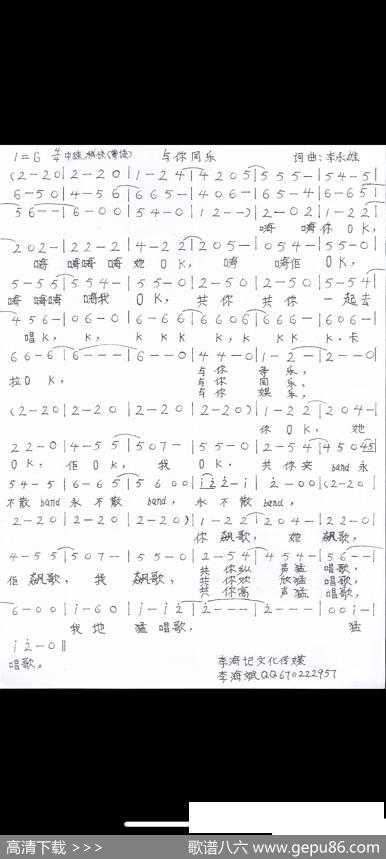 1=G 4/4 中速 稍快(粤语) 与你同乐 词曲:李永雄
(2-20|2-20|1-24|4205|555-|54-5|
6-50|4-56|665-|406-|65-4|6-65|
56--|6-00|54-0|12--)|2-02|1-22|
嗨 嗨你OK,
202-|22-2|4-22|205-|054-|55-0|
嗨 嗨嗨 嗨她OK, 嗨 嗨佢 OK,
5-55|554-|55-0|2-50|2-50|5-54|
嗨 嗨嗨 嗨我 OK, 共你 共你 一起去
456-|06-0|6-66|6606|666-|606-|
唱K, K, K KK K,K KK K,卡
66-6|6---|6--0|44-0|1-22|2--0|
拉OK, 与你 寻 乐,
与你 同 乐,
与你 娱 乐,
(2-20|2-20|2-20|2-20)|1-22|204-|
你OK, 她
22-0|4-55|507-|55-0|2-54|45045|
OK, 佢OK, 我 OK, 共你突 band永
54-5|6-65|5600|i22-i|2-00|(2-20|
不散band永不散 band, 永不散band,
2-20|2-20|2-20)|1-22|204-|22-0|
你飙歌, 她 飙歌,
4-55|507-|55-0|2-54|454-|56--|
佢飙歌, 我 飙歌, 共你纵 声猛 唱歌,
共你欢 欣猛 唱歌,
共你高 声猛 唱歌,
6-00|i-60|i-i2|2---|2---|00i-|
我地 猛唱歌, 猛
i2-0‖
唱歌。
李海记文化传媒
李海斌QQ670222957
高清下载 >>> 歌谱八六 www.gepu86.com